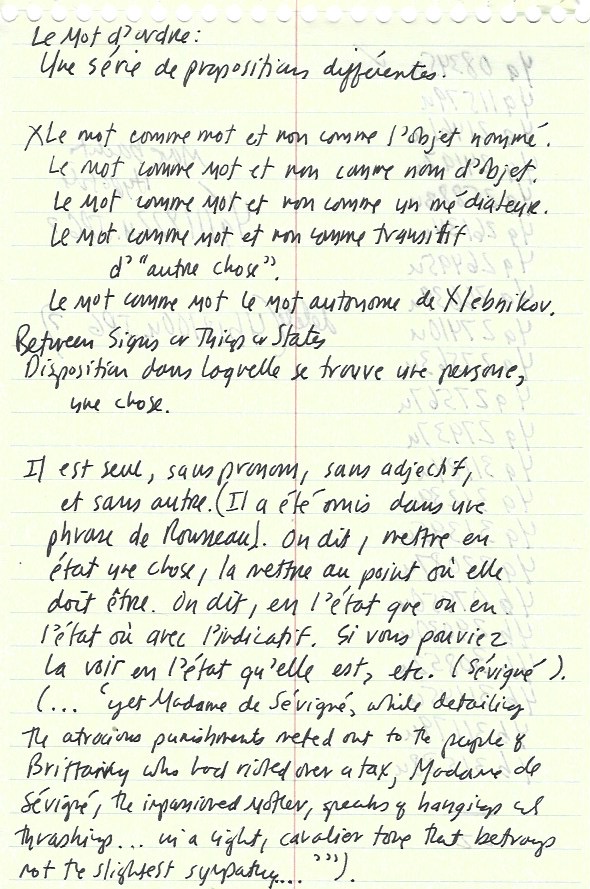 Le Mot d'ordre:
Une série de propositions différentes.
X Le mot comme mot et non comme l'objet nommé.
Le mot comme mot et non comme nom d'objet.
Le mot comme mot et non comme un médiateur.
Le mot comme mot et non comme transitif
d'"autre chose".
Le mot comme mot le mot autonome de Xlebnikov.
Between Signs or Things or States
Disposition dans laquelle se trouve une personne,
une chose.
Il est seul, sans pronom, sans adjectif,
et sans autre. (Il a été omis dans une
phrase de Rousseau). On dit, mettre en
état une chose, la mettre au point où elle
doit être. On dit, en l'état que ou en
l'état où avec l'indicatif. Si vous pouviez
la voir en l'état qu'elle est, etc. (Sévigné).
(... "yet Madame de Sévigné, while detailing
the atrocious punishments meted out to the people of
Brittany who had rioted over a tax, Madame de
Sévigné, the impassioned mother, speaks of hangings and
thrashings... in a light, cavalier tone that betrays
not the slightest sympathy...")).